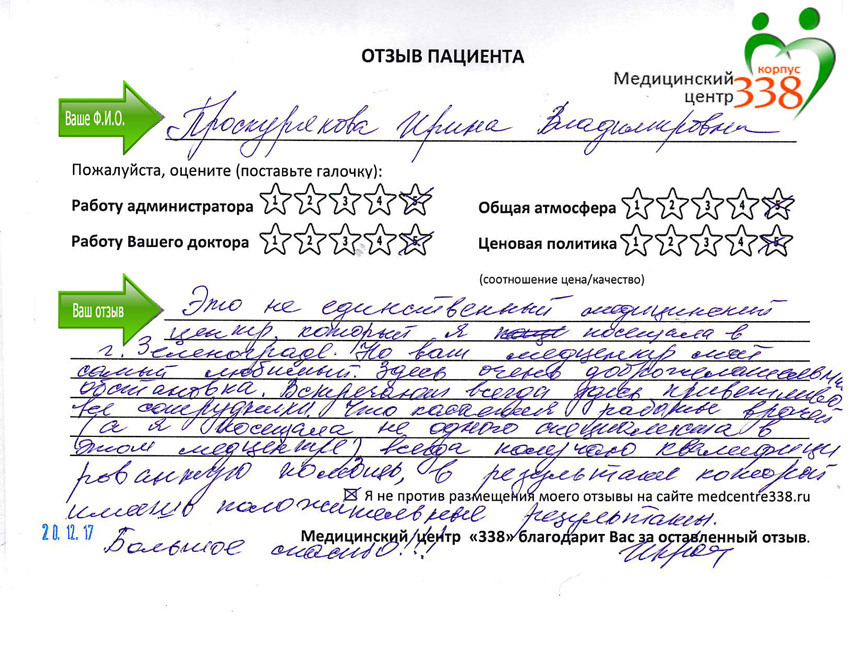 ОТЗЫВ ПАЦИЕНТА
Медицинский
центр
корпус
338
Ваше Ф.И.О.
Проскурякова Ирина Владимировна
Пожалуйста, оцените (поставьте галочку):
Работу администратора 1 2 3 4 5
Общая атмосфера 1 2 3 4 5
Работу Вашего доктора 1 2 3 4 5
Ценовая политика 1 2 3 4 5
(соотношение цена/качество)
Ваш отзыв
Это не единственный медицинский
центр, который я посещала в
г. Зеленограде. Но ваш медцентр мой
самый любимый. Здесь очень доброжелательная
обстановка. Встречают всегда здесь приветливо
все сотрудники. Что касается работы врачей
(а я посещала не одного специалиста в
этом медцентре) всегда получаю квалифици
рованную помощь, в результате которой
Я не против размещения моего отзывы на сайте medcentre338.ru
имею положительные результаты.
20.12.17
Медицинский центр «338» благодарит Вас за оставленный отзыв.
Большое спасибо!!!